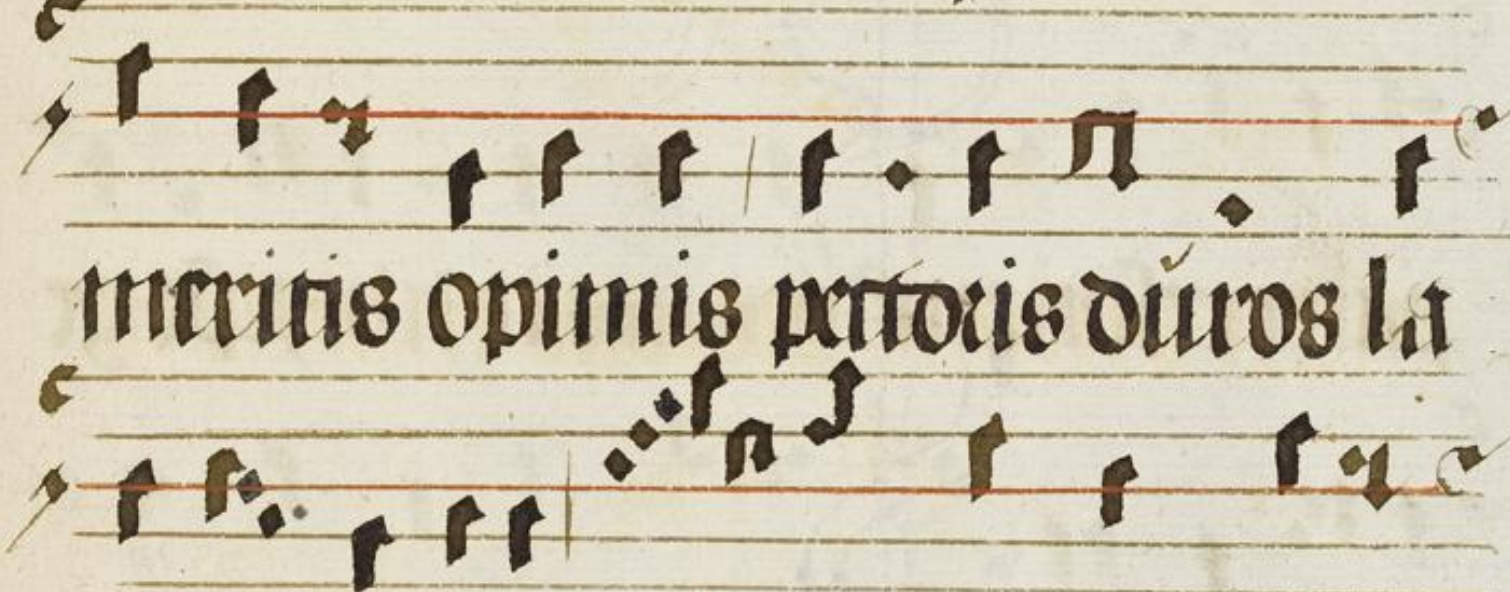 meritis opimis pectoris duros la